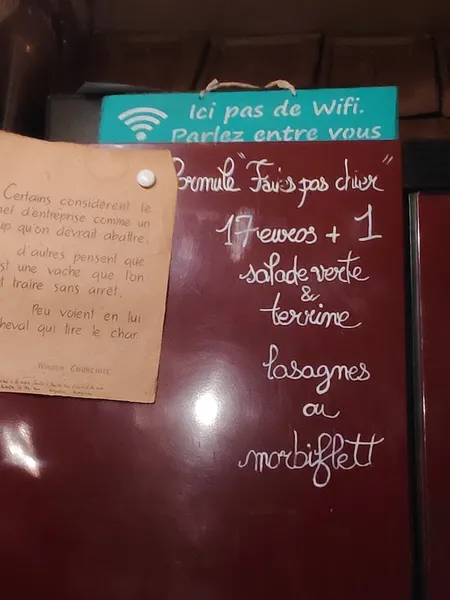 Ici pas de Wifi.
Parlez entre vous
ormule "Fais pas chier"
17 euros + 1
salade verte
&
terrine
lasagnes
ou
morbiflett
Certains considèrent le
ef d'entreprise comme un
up qu'on devrait abattre,
d'autres pensent que
st une vache que l'on
t traire sans arrêt.
Peu voient en lui
heval qui tire le char
Winston Churchill